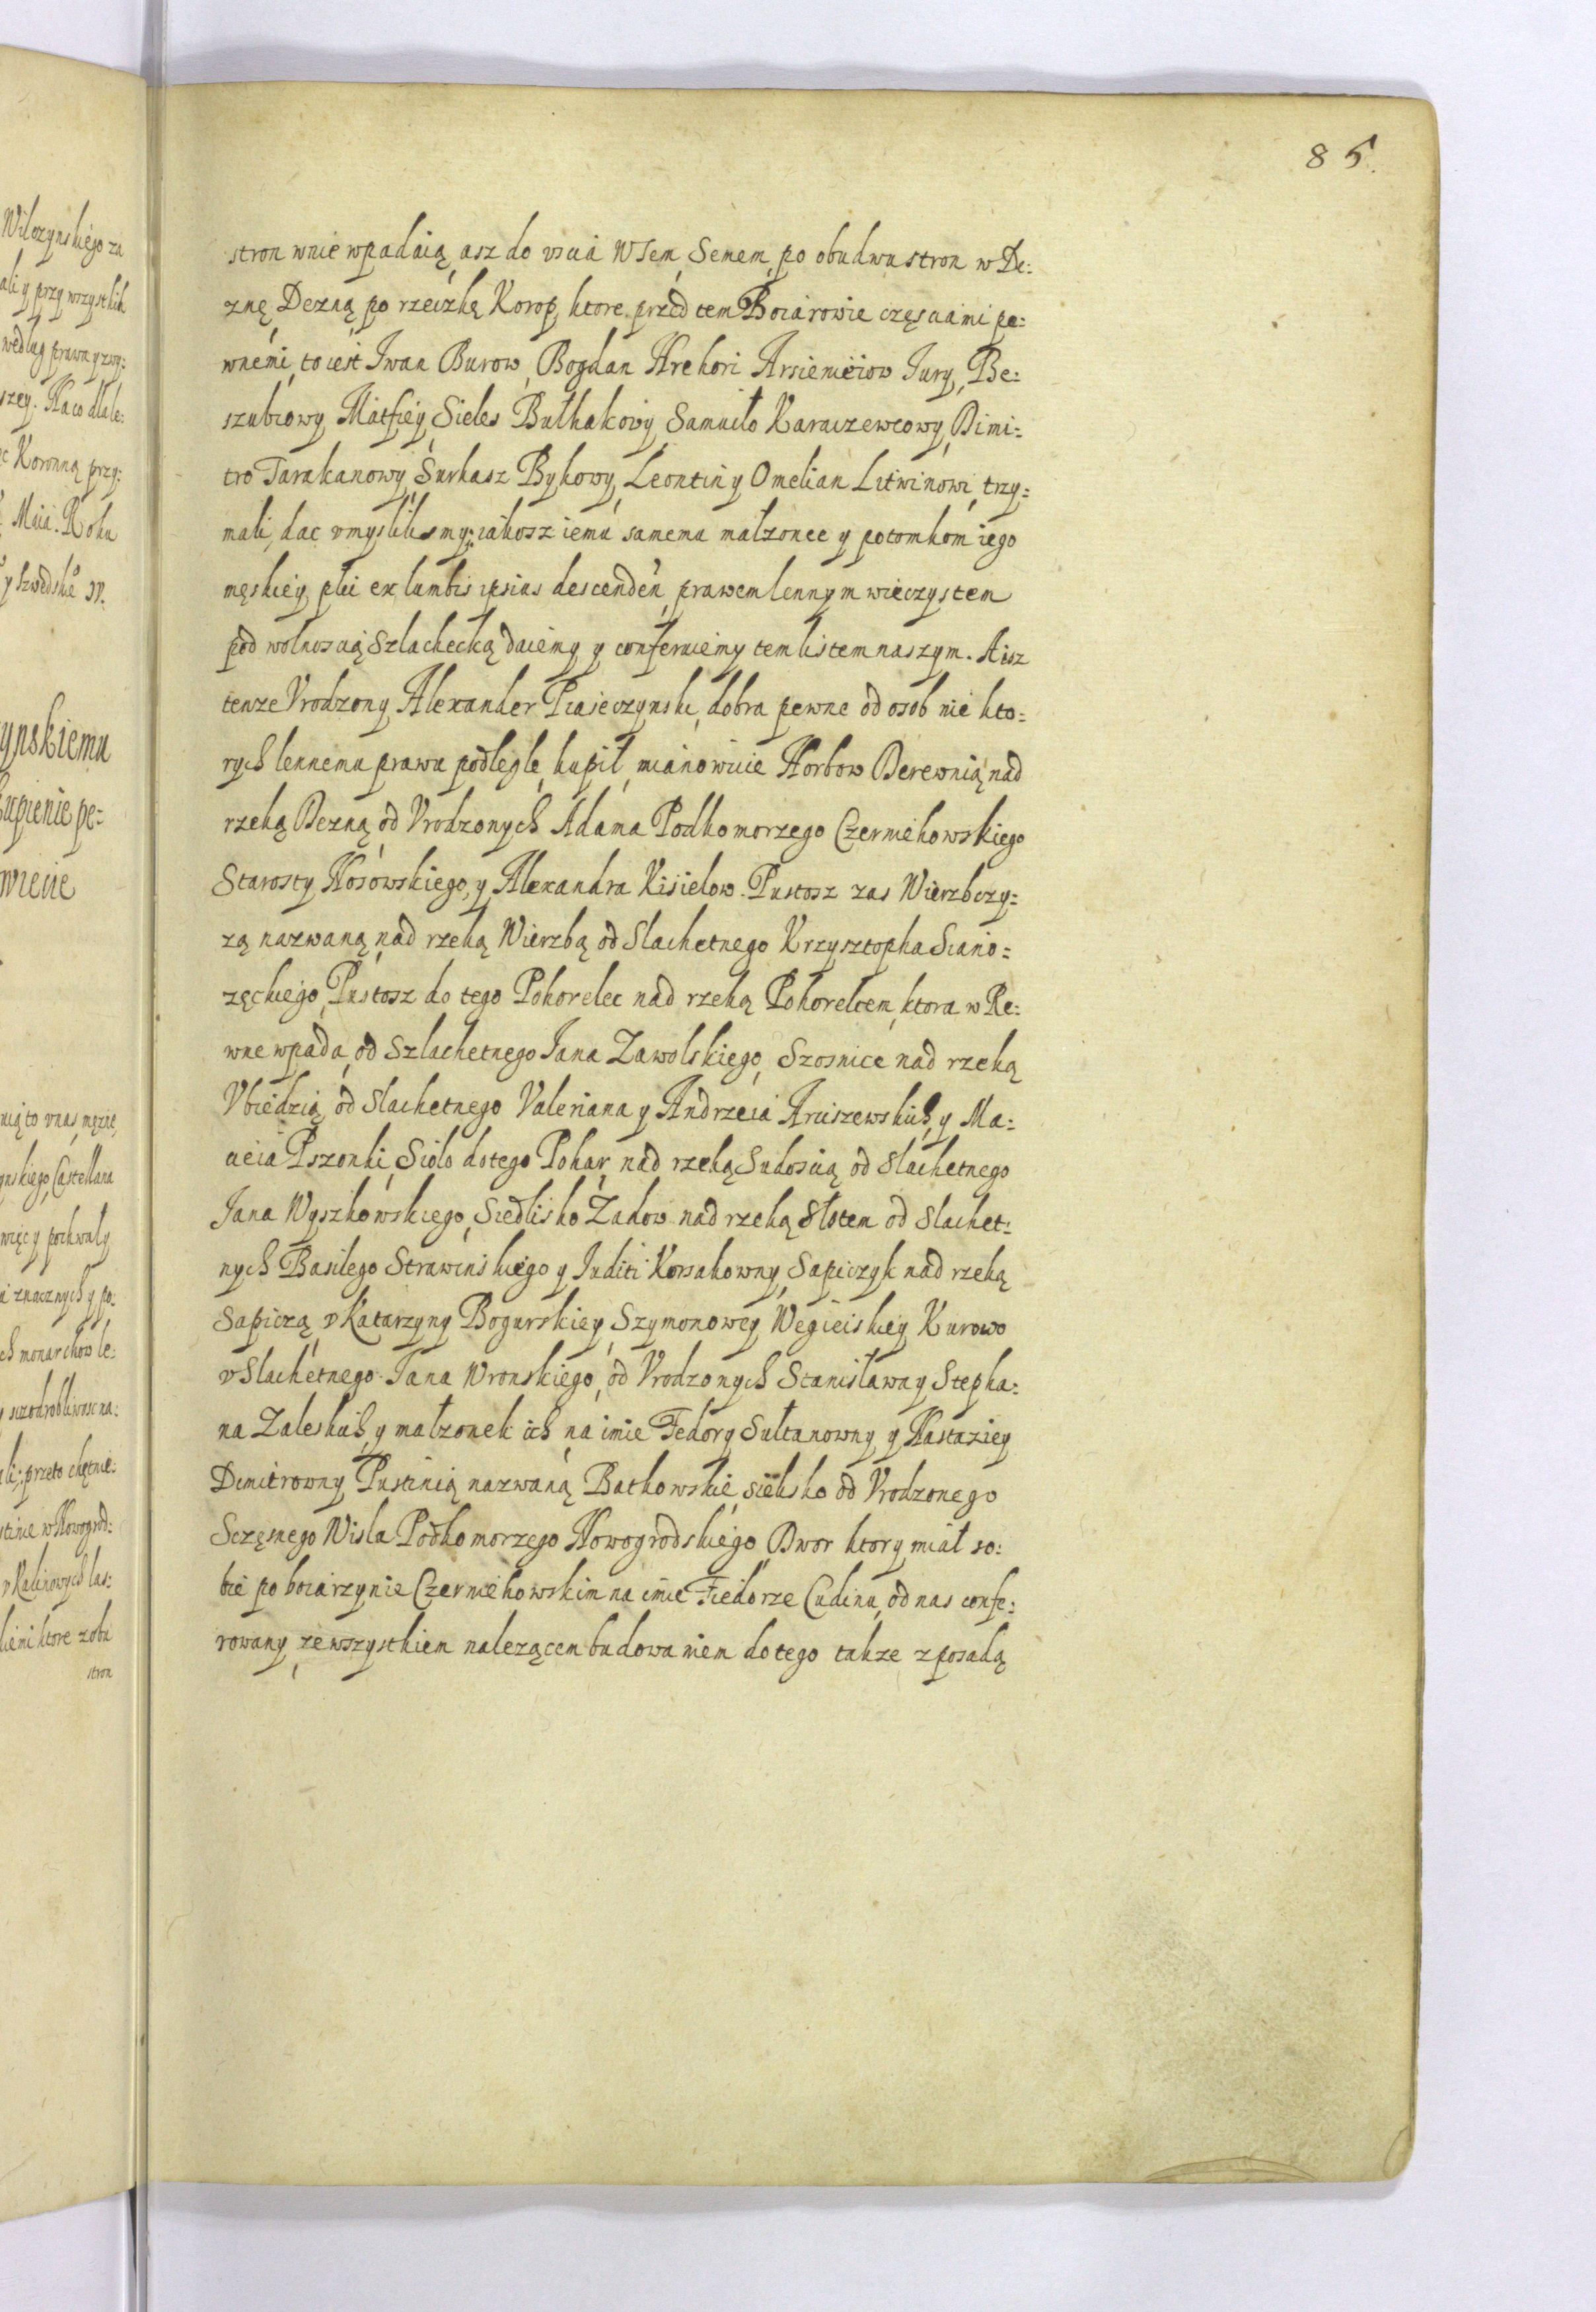 Wilczynskiego za
ali y przy wszystkich
według prawa y zwy:
szey. Na co dla le:
Koronną przy:
Maia. Roku
y szwedskiego IV.
ynskiemu
kupienie pe:
wiecie
ynskiego Castellana
więc y pochwały
znacznych y po:
monarchow le:
sczodrobliwosc na:
ali; przeto chętnie:
stinie w Nowogrod:
v Kalinowych las:
kiemi ktore z obu
stron
85.
stron wnie wpadaią, asz do vscia W Sem, Semem, po obudwu stron w De:
znę, Dezną po rzeczkę Korop, ktore przed tem Boiarowie częsciami pe:
wnemi, to iest Iwan Burow, Bogdan Hrehori Arsieniciow Iury, Be:
szubiowy, Matfiey Sieles Bułhakowy, Samuiło Karaczewcowy, Dimi:
tro Tarakanowy, Surkasz Bykowy, Leontin y Omelian Litwinowi, trzy:
mali, dac vmyslilismy: iakosz iemu samemu małzonce y potomkom iego
męskiey płci ex lumbis ipsius descenden, prawem lennym wieczystem
pod wolnoscią Szlachecką daiemy y conferuiemy tem listem naszym. A isz
tenze Vrodzony Alexander Piaseczynski, dobra pewne od osob nie kto:
rych lennemu prawu podległe, kupił, mianowicie Horbow Derewnią nad
rzeką Dezną, od Vrodzonych Adama Podkomorzego Czerniehowskiego
Starosty Nosowskiego, y Alexandra Kisielow. Pustosz zas Wierzbczy:
zą nazwaną, nad rzeką Wierzbą od Slachetnego Krzysztopha Sciano:
zęckiego, Pustosz do tego Pohorelec nad rzeką Pohorelcem, ktora w Re:
wne wpada, od Szlachetnego Iana Zawolskiego, Szosnice nad rzeką
Vbiedzią, od Slachetnego Valeriana y Andrzeia Arciszewskich, y Ma:
cieia Pszonki, Sioło do tego Pohar, nad rzeką Sudoscią od slachetnego
Iana Wyszkowskiego, Siedlisko Zadow nad rzeką Słotem od Slachet:
nych Basilego Strawinskiego y Iuditi Korsakowny, Sapiczyk nad rzeką
Sapiczą, v Katarzyny Bogurskiey, Szymonowey Węgieiskiey, Kurowo
v Slachetnego Iana Wronskiego, od Vrodzonych Stanisława y Stepha:
na Zaleskich, y małzonek ich, na imie Fedory Sułtanowny, y Nastaziey
Dimitrowny, Pustinią nazwaną Batkowskie sielisko od Vrodzonego
Sczęsnego Wisla Podkomorzego Nowogrodskiego, Dwor ktory miał so:
bie po boiarzynie Czerniehowskim na imie Fiedorze Cudinu, od nas confe:
rowany, ze wszystkiem nalezącem budowaniem do tego takze z posadą